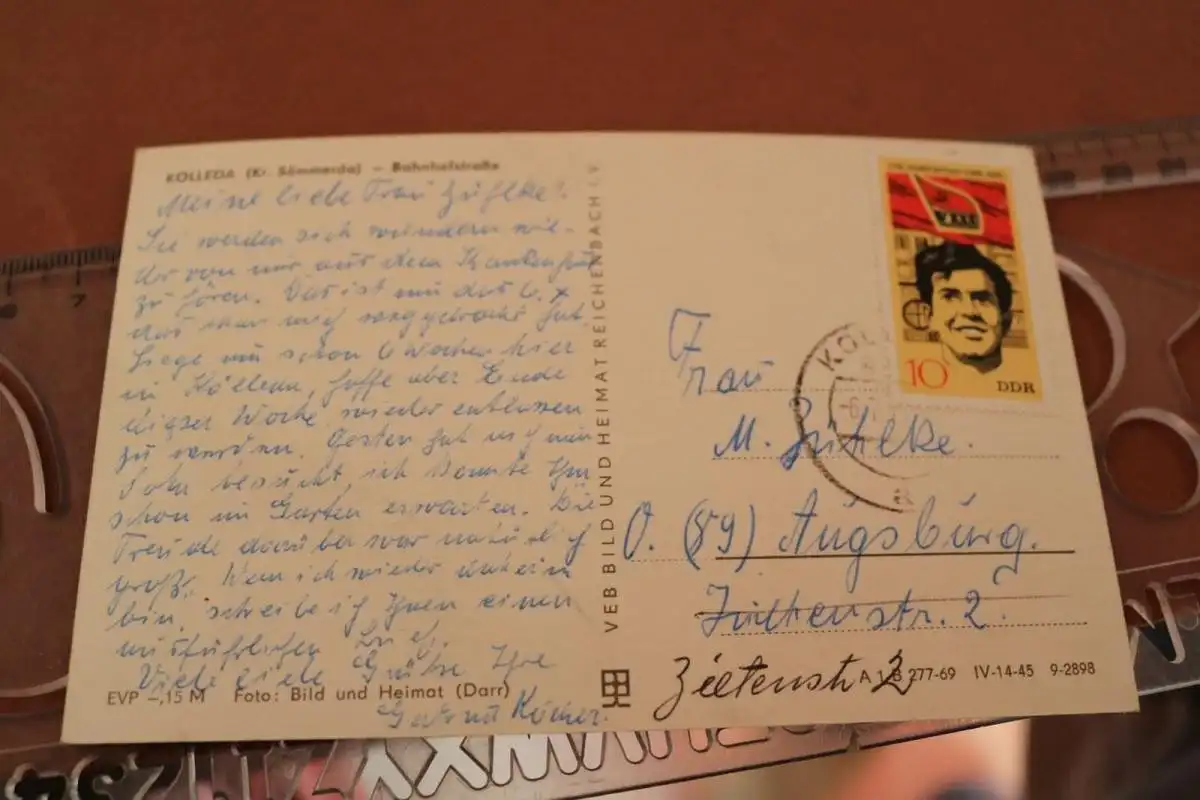 KÖLLEDA (Kr. Sömmerda) – Bahnhofstraße
Meine liebe Frau Zühlke!
Sie werden sich wundern wie-
der von mir aus dem Krankenhaus
zu hören. Das ist nun das 6. x
das man mich hat.
Liege nun schon 6 Wochen hier
in Kölleda, hoffe aber Ende
dieser Woche wieder entlassen
zu werden. Gestern hat mich mein
Sohn besucht, ich konnte Ihn
schon im Garten erwarten. Die
Freude darüber war natürlich
groß. Wenn ich wieder daheim
bin, schreibe ich Ihnen einen
ausführlichen Brief.
Viele liebe Grüße Ihre
Gertrud Köcher.
EVP –,15 M Foto: Bild und Heimat (Darr)
VEB BILD UND HEIMAT REICHENBACH i. V.
10
DDR
KÖL
-6.
Frau
M. Zühlke.
(89) Augsburg.
2.
Zietenstr. 2
A 1/B 277-69 IV-14-45 9-2898
7